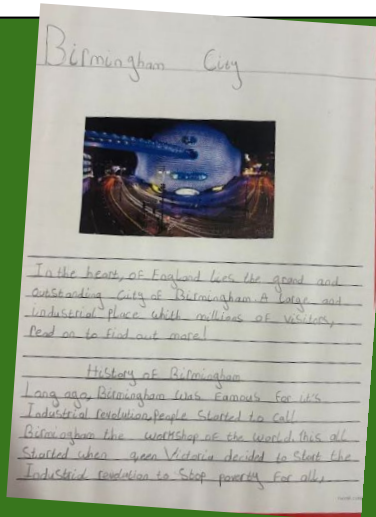 Birmingham City
In the heart, of England lies the grand and
outstanding City of Birmingham. A large and
industrial place whith millions of visitors,
Read on to find out more!
History of Birmingham
Long ago, Birmingham was famous for it's
Industrial revolution, People started to call
Birmingham the workshop of the world. This all
started when qeen Victoria decided to start the
Industrial revolation to Stop poverty for all.